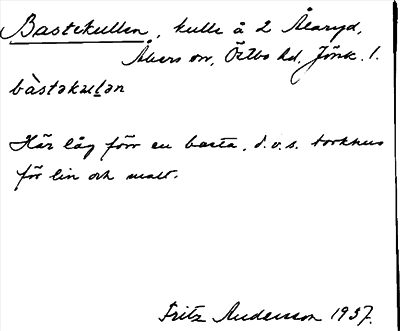 Bastekullen, kulle å 2 Åaryd,
Åkers sn, Östbo hd, Jönk. l.
bàstəkuḷən
Här låg förr en basta, d.v.s. torkhus
för lin och malt.
Fritz Andersson 1937.